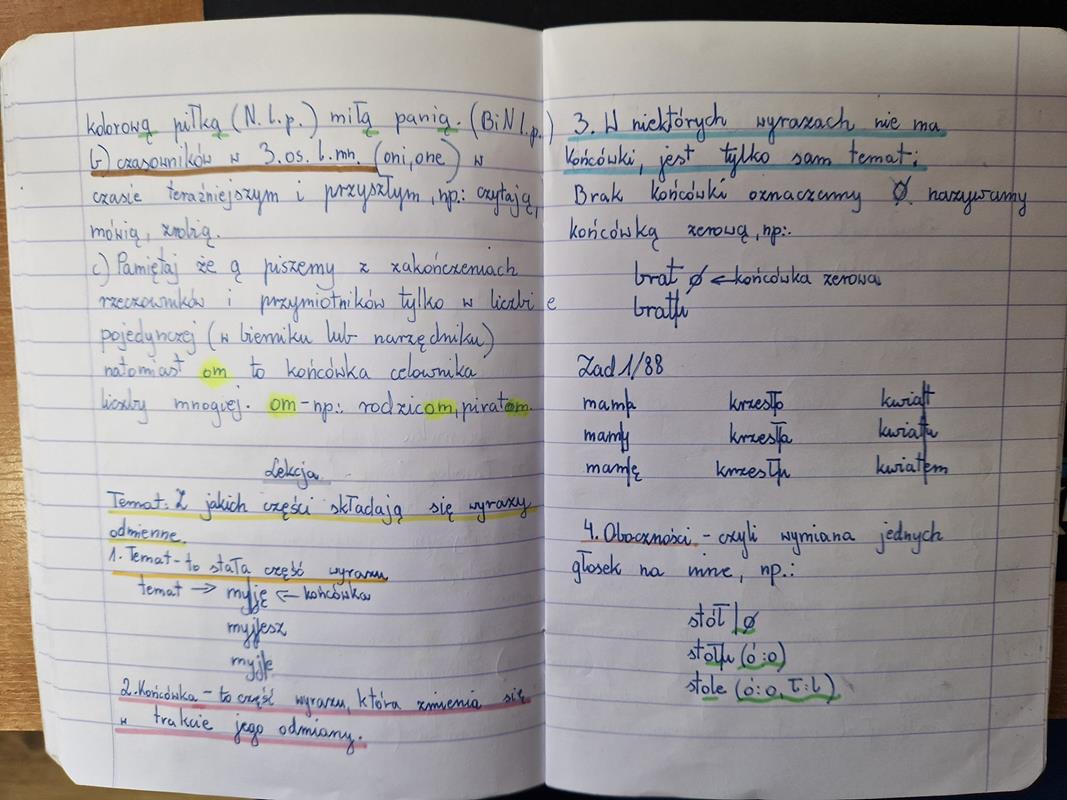 kolorową piłką (N. l.p.) miłą panią. (BiN l.p.)
b) czasowników w 3. os. l. mn. (oni, one) w
czasie teraźniejszym i przyszłym, np.: czytają,
mówią, zrobią.
c) Pamiętaj że ą piszemy z zakończeniach
rzeczowników i przymiotników tylko w liczbie
pojedynczej (w bierniku lub narzędniku)
natomiast om to końcówka celownika
liczby mnogiej. om - np.: rodzicom, piratom.
Lekcja
Temat: Z jakich części składają się wyrazy
odmienne.
1. Temat - to stała część wyrazu
temat → myj|ę ← końcówka
myj|esz
myj|e
2. Końcówka - to część wyrazu, która zmienia się
w trakcie jego odmiany.
3. W niektórych wyrazach nie ma
końcówki, jest tylko sam temat:
Brak końcówki oznaczamy Ø. nazywamy
końcówką zerową, np.:
brat Ø ← końcówka zerowa
brat|u
Zad 1/88
mam|a krzesł|o kwiat|
mam|y krzesł|a kwiat|u
mam|ę krzesł|u kwiat|em
4. Oboczności - czyli wymiana jednych
głosek na inne, np.:
stół|Ø
stoł|u (ó:o)
stole (ó:o, ł:l)